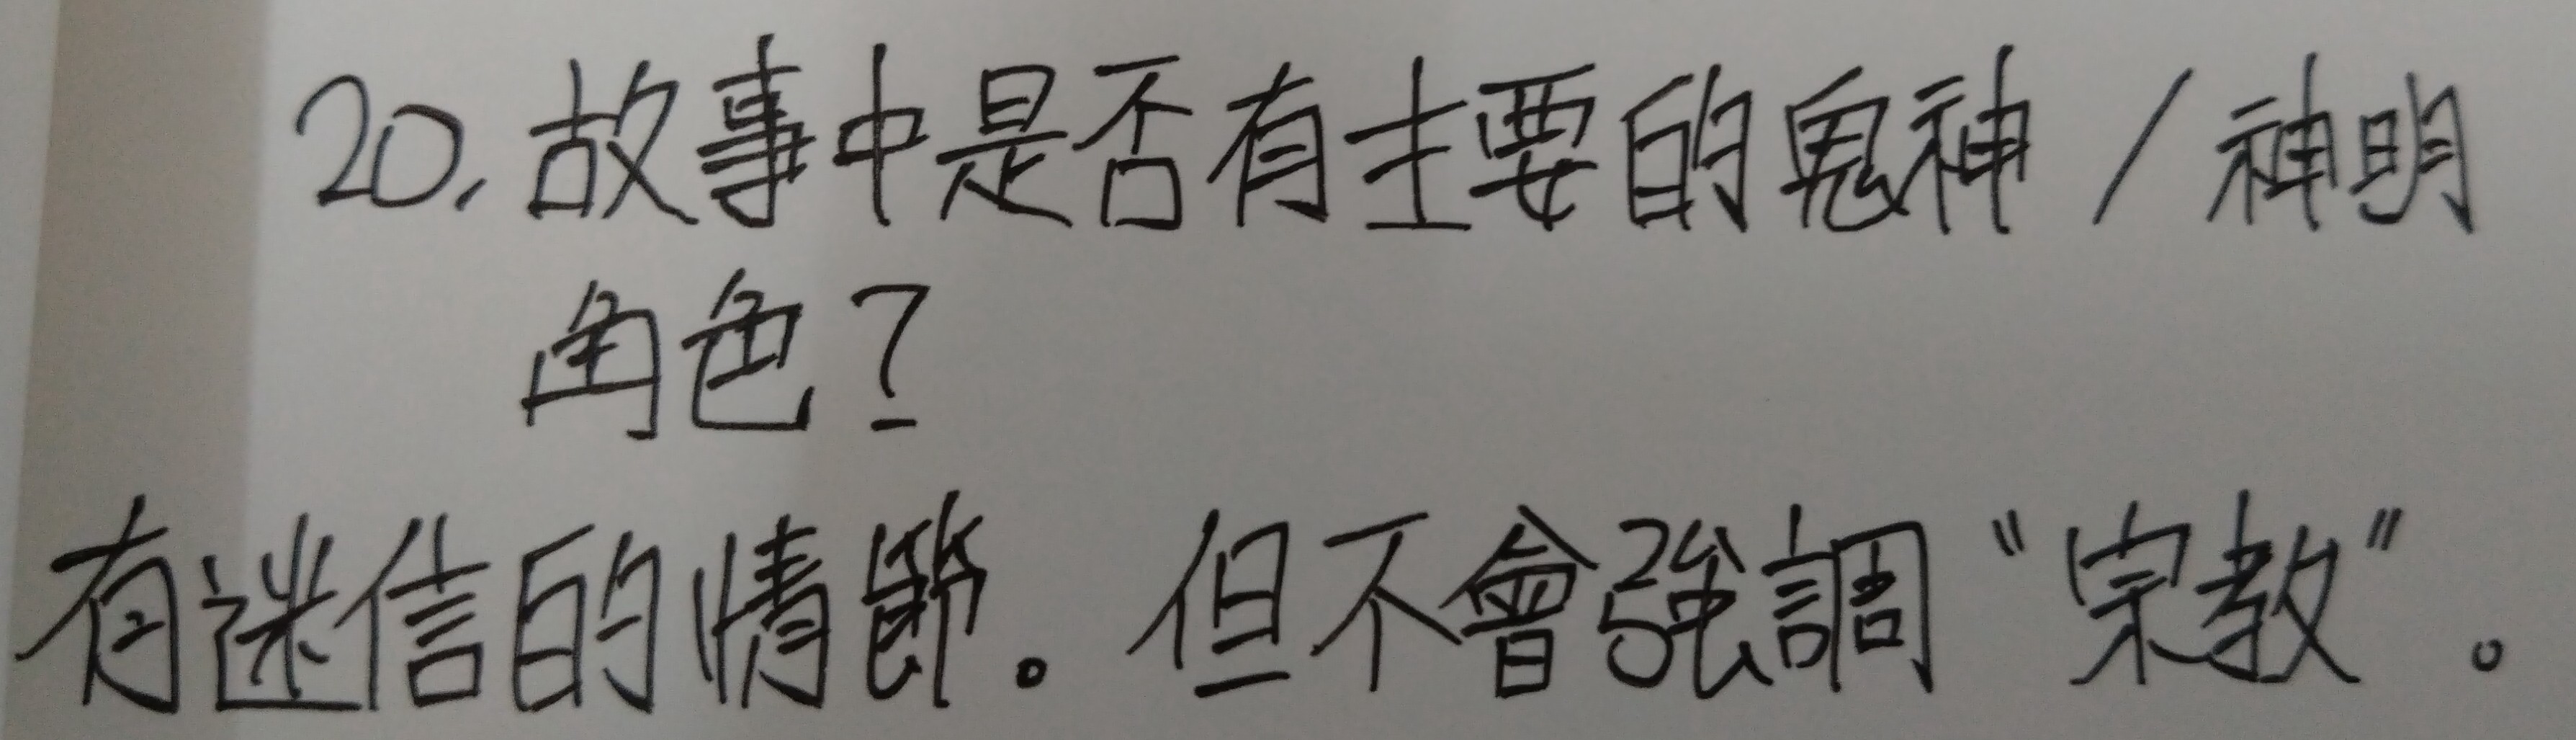 20. 故事中是否有主要的鬼神 / 神明
角色?
有迷信的情節。但不會強調“宗教”。